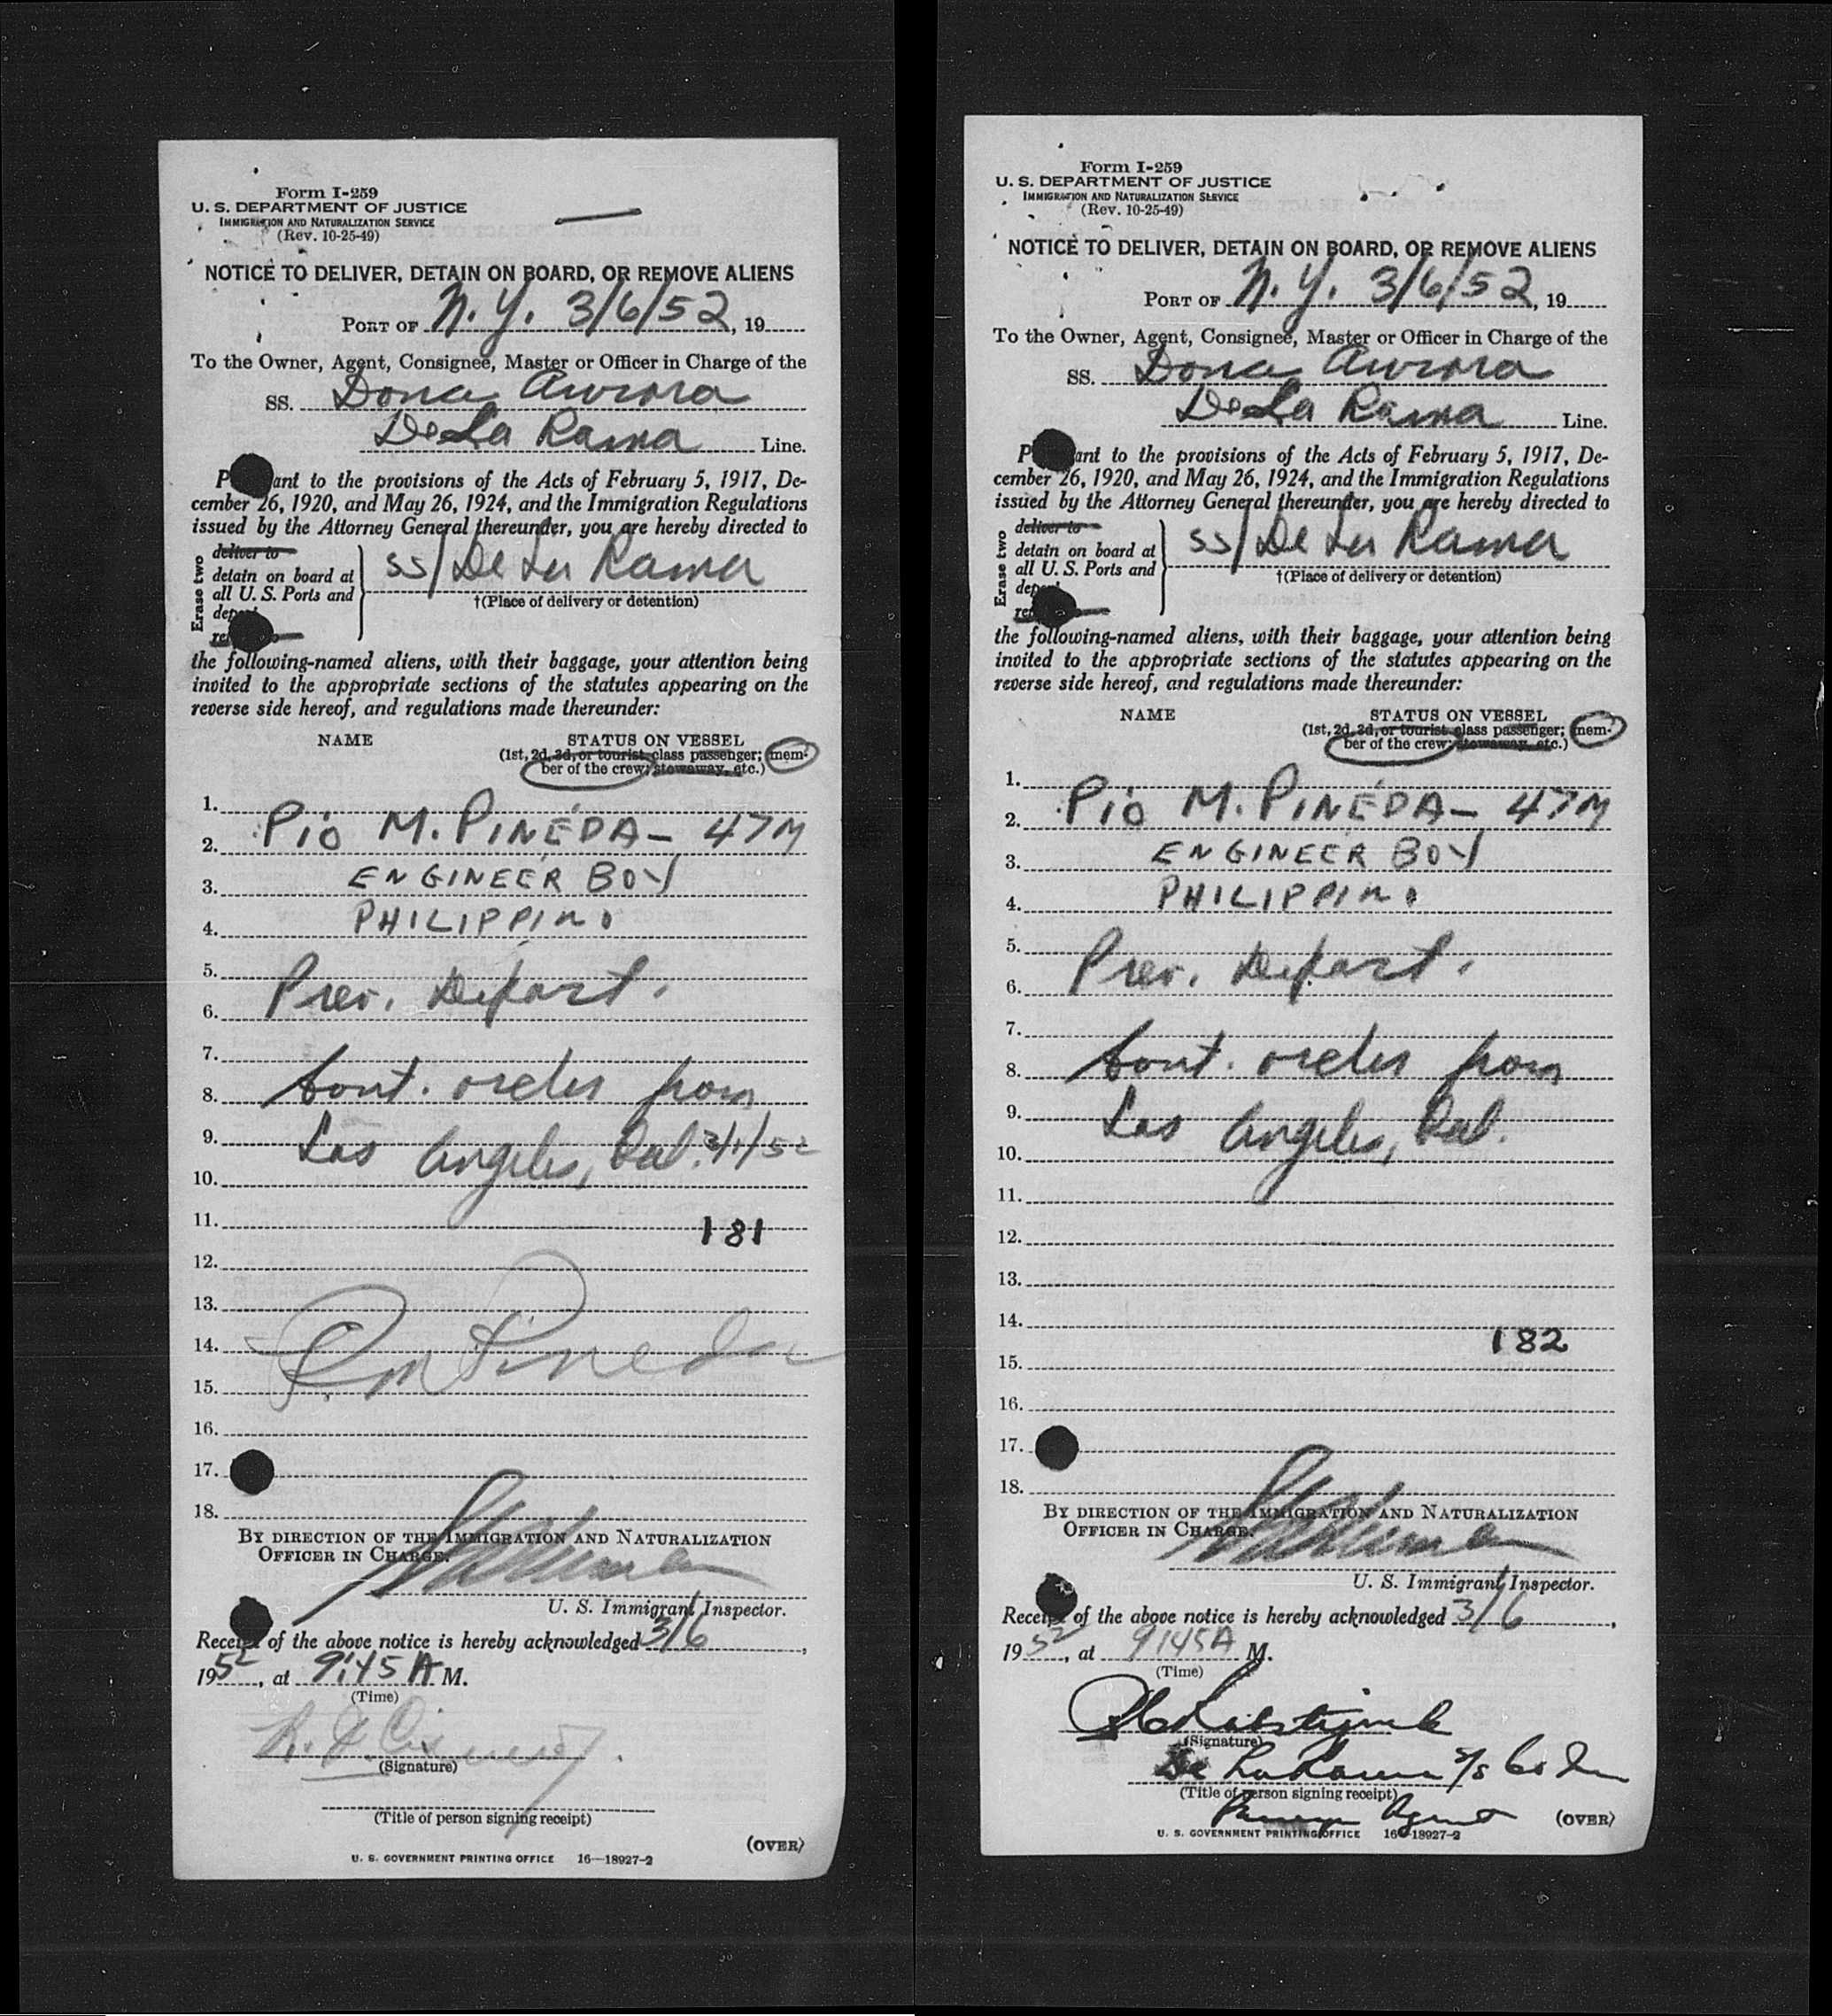 Form I-259
U. S. DEPARTMENT OF JUSTICE
IMMIGRATION AND NATURALIZATION SERVICE
(Rev. 10-25-49)
NOTICE TO DELIVER, DETAIN ON BOARD, OR REMOVE ALIENS
PORT OF N. Y. 3/6/52, 19
To the Owner, Agent, Consignee, Master or Officer in Charge of the
SS. Dona Aurora
De La Rama Line.
P ant to the provisions of the Acts of February 5, 1917, De-
cember 26, 1920, and May 26, 1924, and the Immigration Regulations
issued by the Attorney General thereunder, you are hereby directed to
Erase two
deliver to
detain on board at
all U. S. Ports and
dep
re
SS/ De La Rama
†(Place of delivery or detention)
the following-named aliens, with their baggage, your attention being
invited to the appropriate sections of the statutes appearing on the
reverse side hereof, and regulations made thereunder:
NAME STATUS ON VESSEL
(1st, 2d, 3d, or tourist class passenger; mem-
ber of the crew; stowaway, etc.)
1.
2. PIO M. PINEDA - 47 M
3. ENGINEER BOY
4. PHILIPPIN
5.
6. Prev. Depart.
7.
8. Cont. orders from
9. Los Angeles, Cal. 3/1/52
10.
11. 181
12.
13.
14. P M Pineda
15.
16.
17.
18.
BY DIRECTION OF THE IMMIGRATION AND NATURALIZATION
OFFICER IN CHARGE.
U. S. Immigrant Inspector.
Receipt of the above notice is hereby acknowledged 3/6,
1952, at 9:45 A M.
(Time)
(Signature)
(Title of person signing receipt)
(OVER)
U. S. GOVERNMENT PRINTING OFFICE 16—18927-2
Form I-259
U. S. DEPARTMENT OF JUSTICE
IMMIGRATION AND NATURALIZATION SERVICE
(Rev. 10-25-49)
NOTICE TO DELIVER, DETAIN ON BOARD, OR REMOVE ALIENS
PORT OF N. Y. 3/6/52, 19
To the Owner, Agent, Consignee, Master or Officer in Charge of the
SS. Dona Aurora
De La Rama Line.
P ant to the provisions of the Acts of February 5, 1917, De-
cember 26, 1920, and May 26, 1924, and the Immigration Regulations
issued by the Attorney General thereunder, you are hereby directed to
Erase two
deliver to
detain on board at
all U. S. Ports and
dep
re
SS/ De La Rama
†(Place of delivery or detention)
the following-named aliens, with their baggage, your attention being
invited to the appropriate sections of the statutes appearing on the
reverse side hereof, and regulations made thereunder:
NAME STATUS ON VESSEL
(1st, 2d, 3d, or tourist class passenger; mem-
ber of the crew; stowaway, etc.)
1.
2. PIO M. PINEDA - 47 M
3. ENGINEER BOY
4. PHILIPPIN
5.
6. Prev. Depart.
7.
8. Cont. orders from
9. Los Angeles, Cal.
10.
11.
12.
13.
14.
182
15.
16.
17.
18.
BY DIRECTION OF THE IMMIGRATION AND NATURALIZATION
OFFICER IN CHARGE.
U. S. Immigrant Inspector.
Receipt of the above notice is hereby acknowledged 3/6,
1952, at 9:45 A M.
(Time)
(Signature)
De La Rama S/S Co
(Title of person signing receipt)
Agent
(OVER)
U. S. GOVERNMENT PRINTING OFFICE 16—18927-2